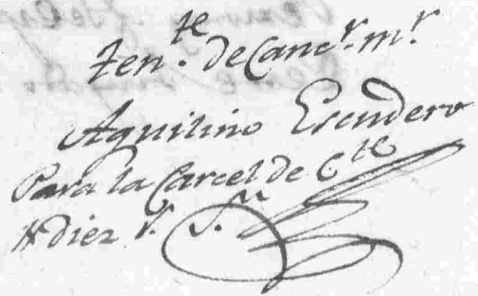 ten.te de Canc.r m.r
Aquilino Escudero
Para la Carcel de C.te
diez r.s